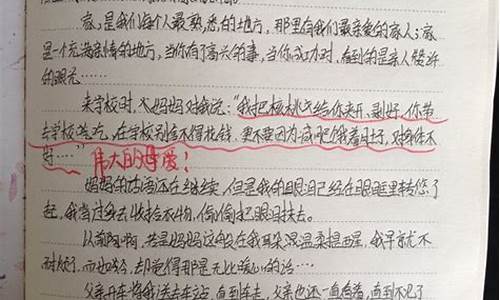 家,是我们每个人最熟悉的地方,那里有我们最亲爱的家人;家
是一个充满亲情的地方,当你有了高兴的事,当你成功时,看到的是亲人赞许
的眼光……
来学校时,妈妈对我说:“我把核桃给你夹开、剥好,你带
去学校吃,在学校别舍不得花钱,更不要因为减肥饿着肚子,对身体不
好……”伟大的母爱!
妈妈的话还在继续,但是我的眼泪已经在眼眶里转悠了
起,我背过身去收拾衣物,偷偷把眼泪抹去。
以前啊,若是妈妈这般在我耳朵温柔提醒,我早就不
耐烦了,而如今,却觉得那是无比暖心的话……
父亲开车将我送去车站,直到车走,父亲也还一直看着,直到不见了